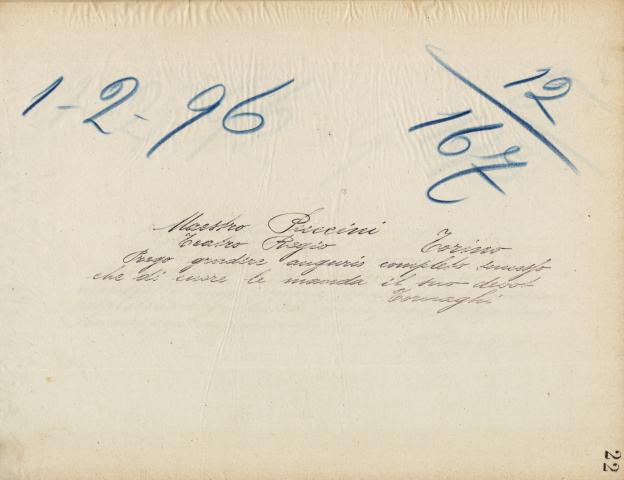 1-2-96
12/167
Maestro Puccini
Teatro Regio Torino
Prego gradire augurio completo successo
che di cuore le manda il suo devot
Tornaghi
22